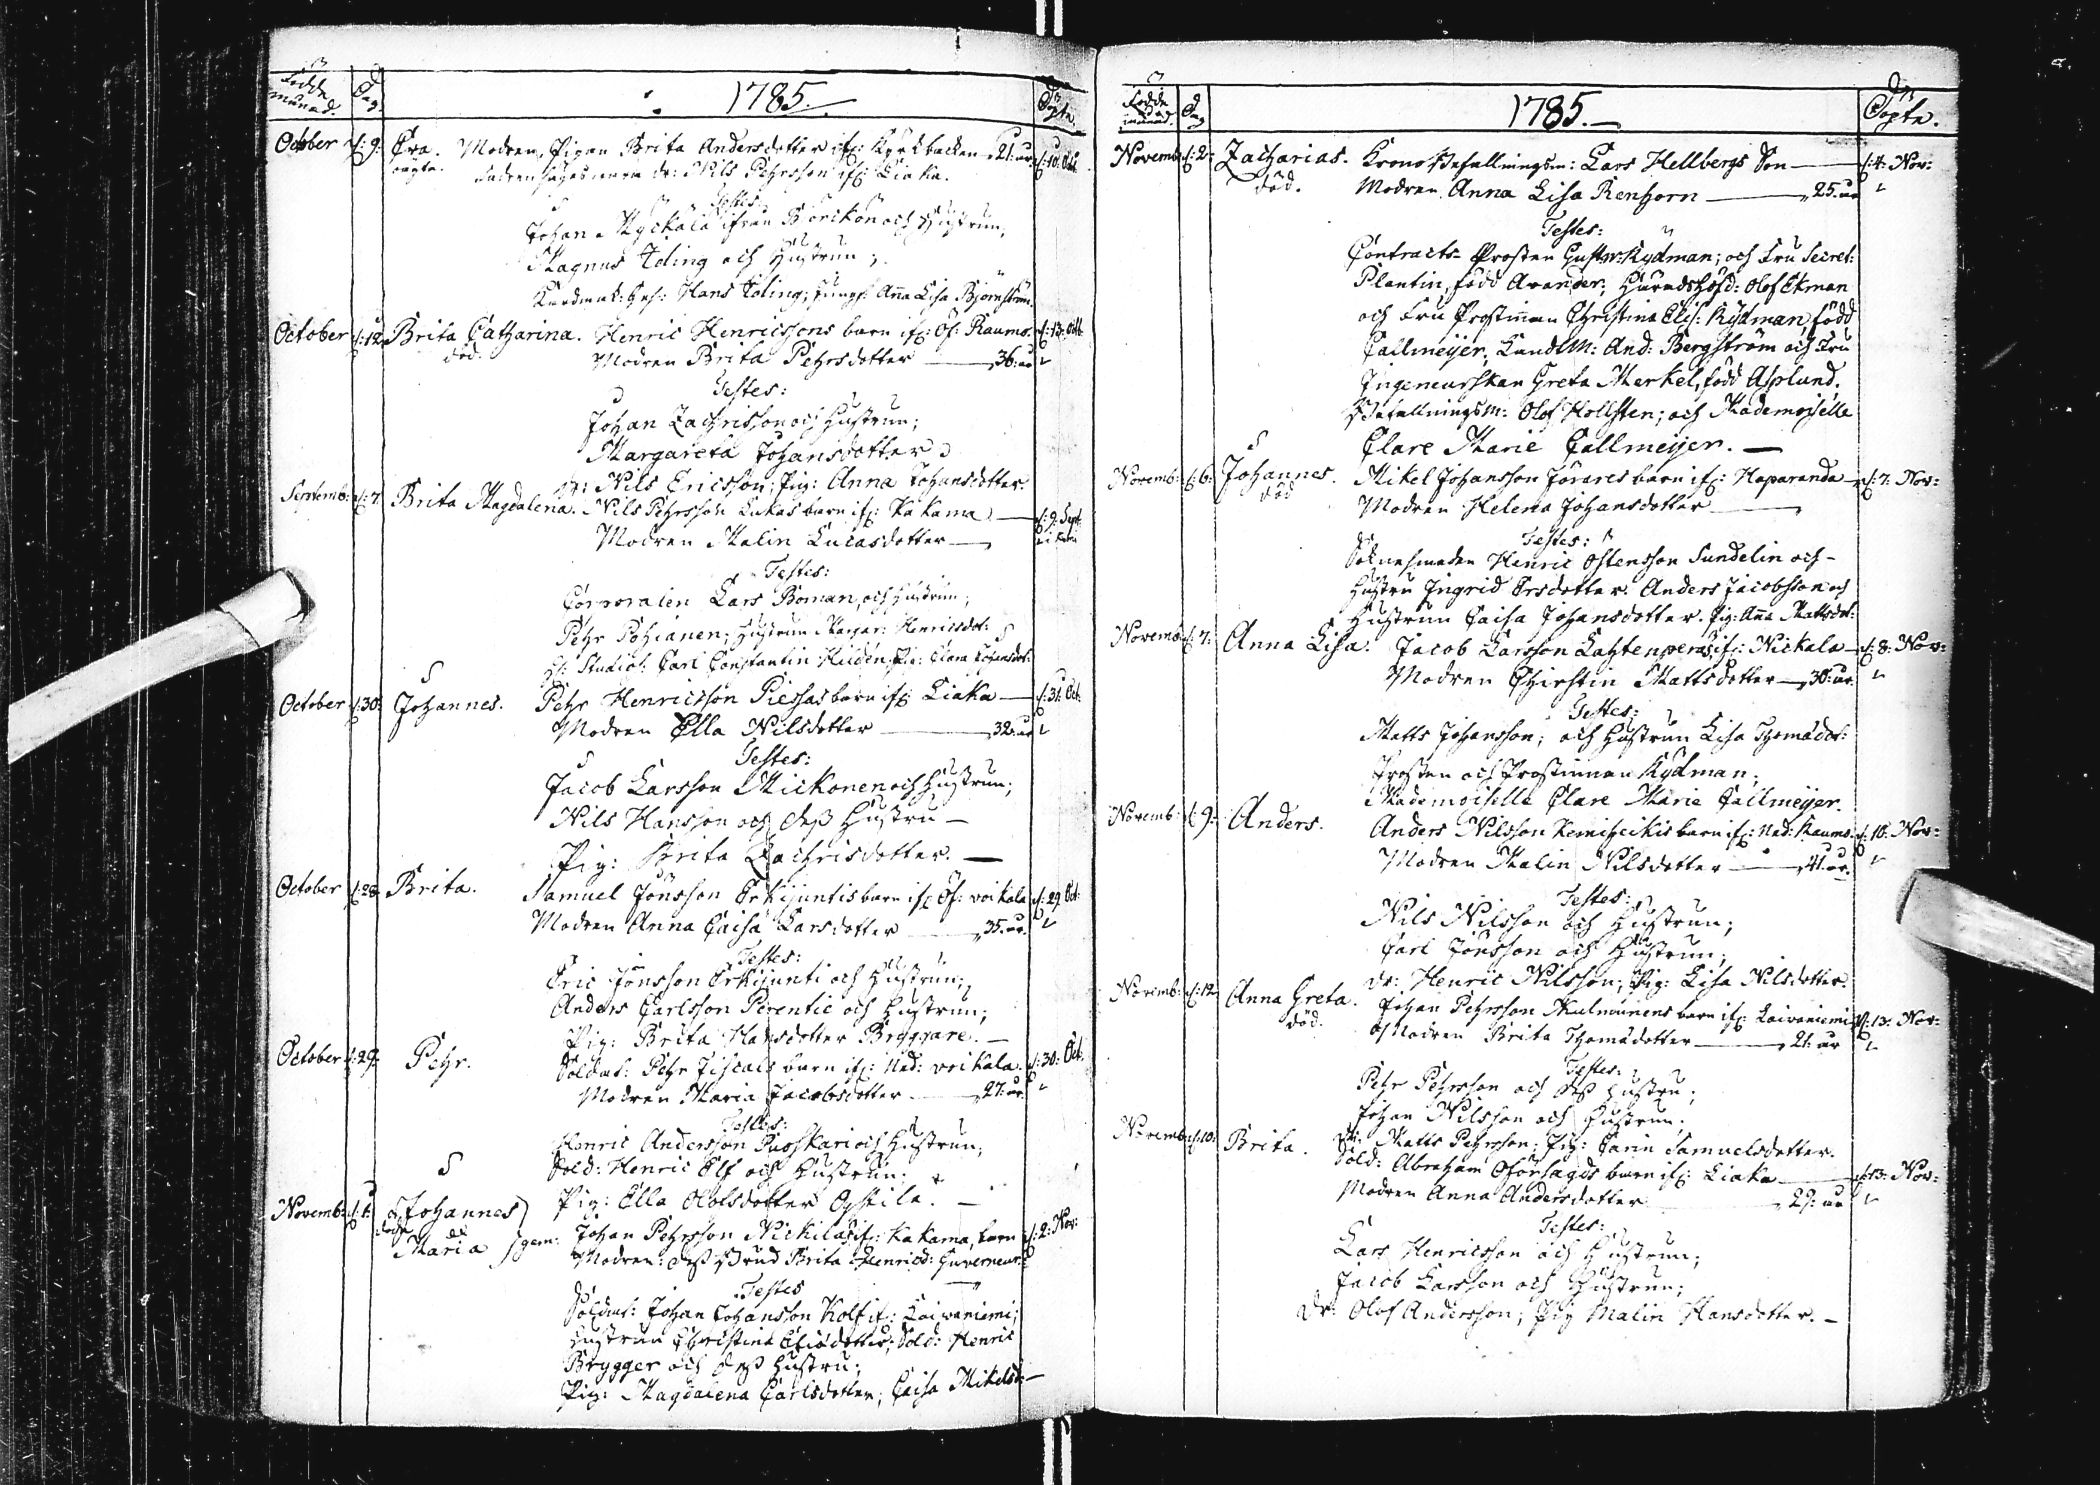 Födde månad. Dag. 1785. Döpte.
October d: 9. Eva. Modren, Pigan Brita Andersdotter if: Kyrkbacken 21. år. d: 10. Oct.
oägta. Fadren sages vara dr: Nils Pehrsson if: Liaka.
Testes:
Johan Kyckälä ifrån Björkön och Hustrun;
Magnus Toling och Hustrun;
Hans Toling; Jungf: Aña Lisa Björnström.
October d: 12. Brita Catharina. Henric Henricssons barn if: Öf: Raumo. d: 13. Oct.
död. Modren Brita Pehrsdotter 36. år
Testes:
Johan Zachrisson och Hustrun;
Margareta Johansdotter
dr: Nils Ericsson; Pig: Anna Johansdotter.
Septemb: d: 7. Brita Magdalena. Nils Pehrsson Lukas barn if: Kakama d: 9. Sept.
Modren Malin Lucasdotter
Testes:
Corporalen Lars Boman, och Hustrun;
Pehr Pohianen; Hustrun Margar: Henricsdot:
H: Studios: Carl Constantin Hildén, Pig: Clara Johansdot:
October d: 30. Johannes. Pehr Henricsson Piessas barn if: Liaka d: 31. Oct.
Modren Ella Nilsdotter 32. år
Testes:
Jacob Larsson Mickonen och Hustrun;
Nils Hansson och dess Hustru
Pig: Brita Zachrisdotter.
October d: 28. Brita. Samuel Jönsson Erkijuntis barn if: Öf: Woikala d: 29. Oct:
Modren Anna Caisa Larsdotter 35. år.
Testes:
Eric Jönsson Erkijunti och Hustrun;
Anders Carlsson Perentie och Hustrun;
Pig: Brita Hansdotter Bryggare.
October d: 29. Pehr. Soldat: Pehr Fiscais barn if: Ned: Woikala. d: 30: Oct.
Modren Maria Jacobsdotter 27. år.
Testes:
Henric Andersson Puoskari och Hustrun;
Sold: Henric Elf och Hustrun;
Pig: Ella Olofsdotter Ogkila.
Novemb: d: 1. Johannes
Maria gem: Johan Pehrsson Nickilas if: Kakama, barn d: 2: Nov:
Modren: dess Brud Brita Henricd: Guverneur.
Testes
Soldat: Johan Johansson Kolf if: Laiwaniemi;
Hustrun Christina; Sold: Henric
Brygger och dess Hustru;
Pig: Magdalena Carlsdotter; Caisa Mikelsd:
Födde månad. Dag 1785. Döpte.
Novemb: d: 2. Zacharias. Krono Befallningsm: Lars Hellbergs Son d: 4. Nov:
död. Modren Anna Lisa Renhorn 25. år
Testes:
Contracts-Prosten Gustav Rydman; och Fru Secret:
Plantin, född Avander; Häradshöfd: Olof Ekman
och Fru Prostinnan Christina Elis: Rydman, född
Callmeijer, Landtm: And: Bergström och Fru
Ingeneurskan Greta Merkel, född Asplund.
Befallningsm: Olof Hollsten; och Mademoiselle
Clare Marie Callmeijer.
Novemb: d: 6. Johannes. Mikel Johansson Jorares barn if: Haparanda d: 7. Nov:
död Modren Helena Johansdotter
Testes:
Soknesmeden Henric Ostensson Sundelin och
Hustru Ingrid Ersdotter. Anders Jacobsson och
Hustrun Caisa Johansdotter. Pig: Aña Mattsdot:
Novemb: d: 7. Anna Lisa. Jacob Larsson Lahtenperäs, if: Nickala d: 8. Nov:
Modren Chirstin Mattsdotter 30. år.
Testes:
Matts Johansson; och Hustrun Lisa Thomædot:
Prosten och Prostinnan Rydman;
Mademoiselle Clare Marie Callmeijer.
Novemb: d: 9. Anders. Anders Nilsson Kemiheikis barn if: Ned: Raumo. d: 10. Nov:
Modren Malin Nilsdotter 41. år.
Testes:
Nils Nilsson och Hustrun;
Carl Jönsson och Hustrun;
dr: Henric Nilsson; Pig: Lisa Nilsdotter.
Novemb: d: 12. Anna Greta. Johan Pehrsson Kulmunens barn if: Laiwaniemi d: 13. Nov:
död. Modren Brita Thomædotter 21. år
Testes:
Pehr Pehrsson och dess Hustru;
Johan Nilsson och Hustrun;
dr: Matts Pehrsson; Pig: Carin Samuelsdotter.
Novemb: d: 10. Brita. Sold: Abraham Oförsagds barn if: Liaka d: 13. Nov:
Modren Anna Andersdotter 29. år
Testes:
Lars Henricsson och Hustrun;
Jacob Larsson och Hustrun;
dr: Olof Andersson; Pig Malin Hansdotter.